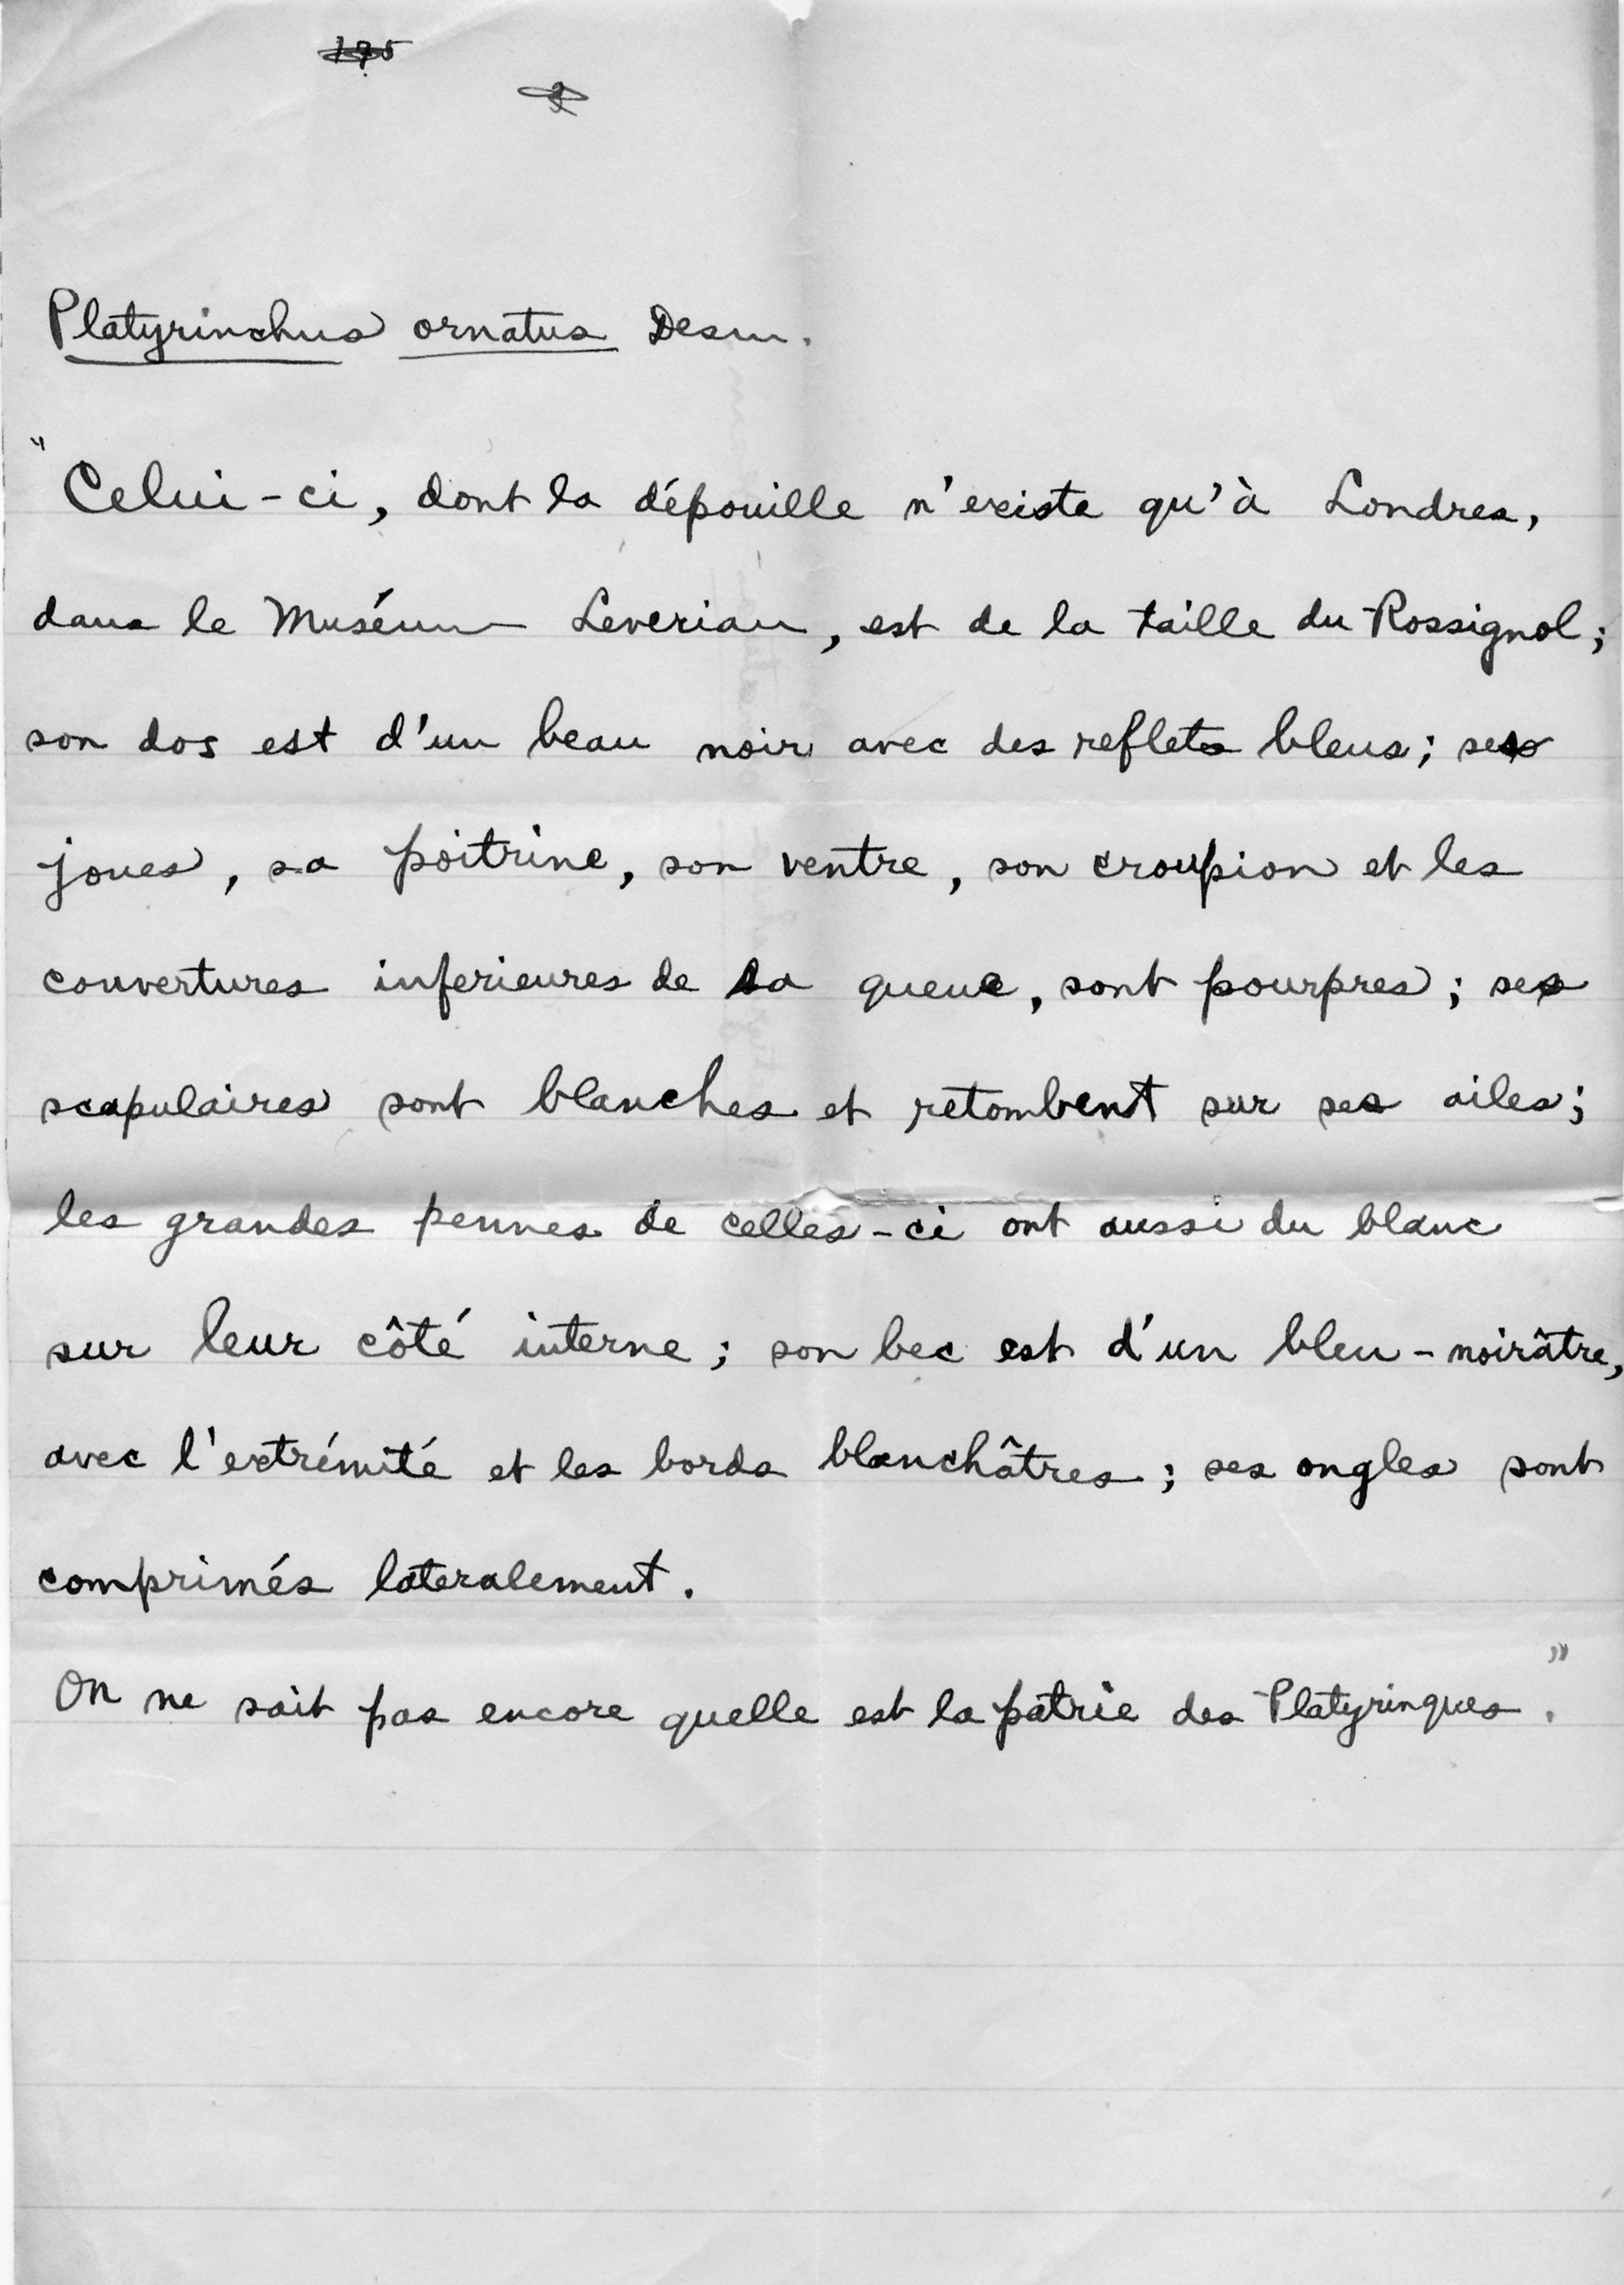 175
Platyrinchus ornatus Desm.
"Celui-ci, dont la dépouille n'existe qu'à Londres,
dans le Muséum Leverian, est de la taille du Rossignol;
son dos est d'un beau noir avec des reflets bleus; ses
joues, sa poitrine, son ventre, son croupion et les
couvertures inferieures de sa queue, sont pourpres; ses
scapulaires sont blanches et retombent sur ses ailes;
les grandes pennes de celles-ci ont aussi du blanc
sur leur côté interne; son bec est d'un bleu-noirâtre,
avec l'extrémité et les bords blanchâtres; ses ongles sont
comprimés lateralement.
On ne sait pas encore quelle est la patrie des Platyrinques."